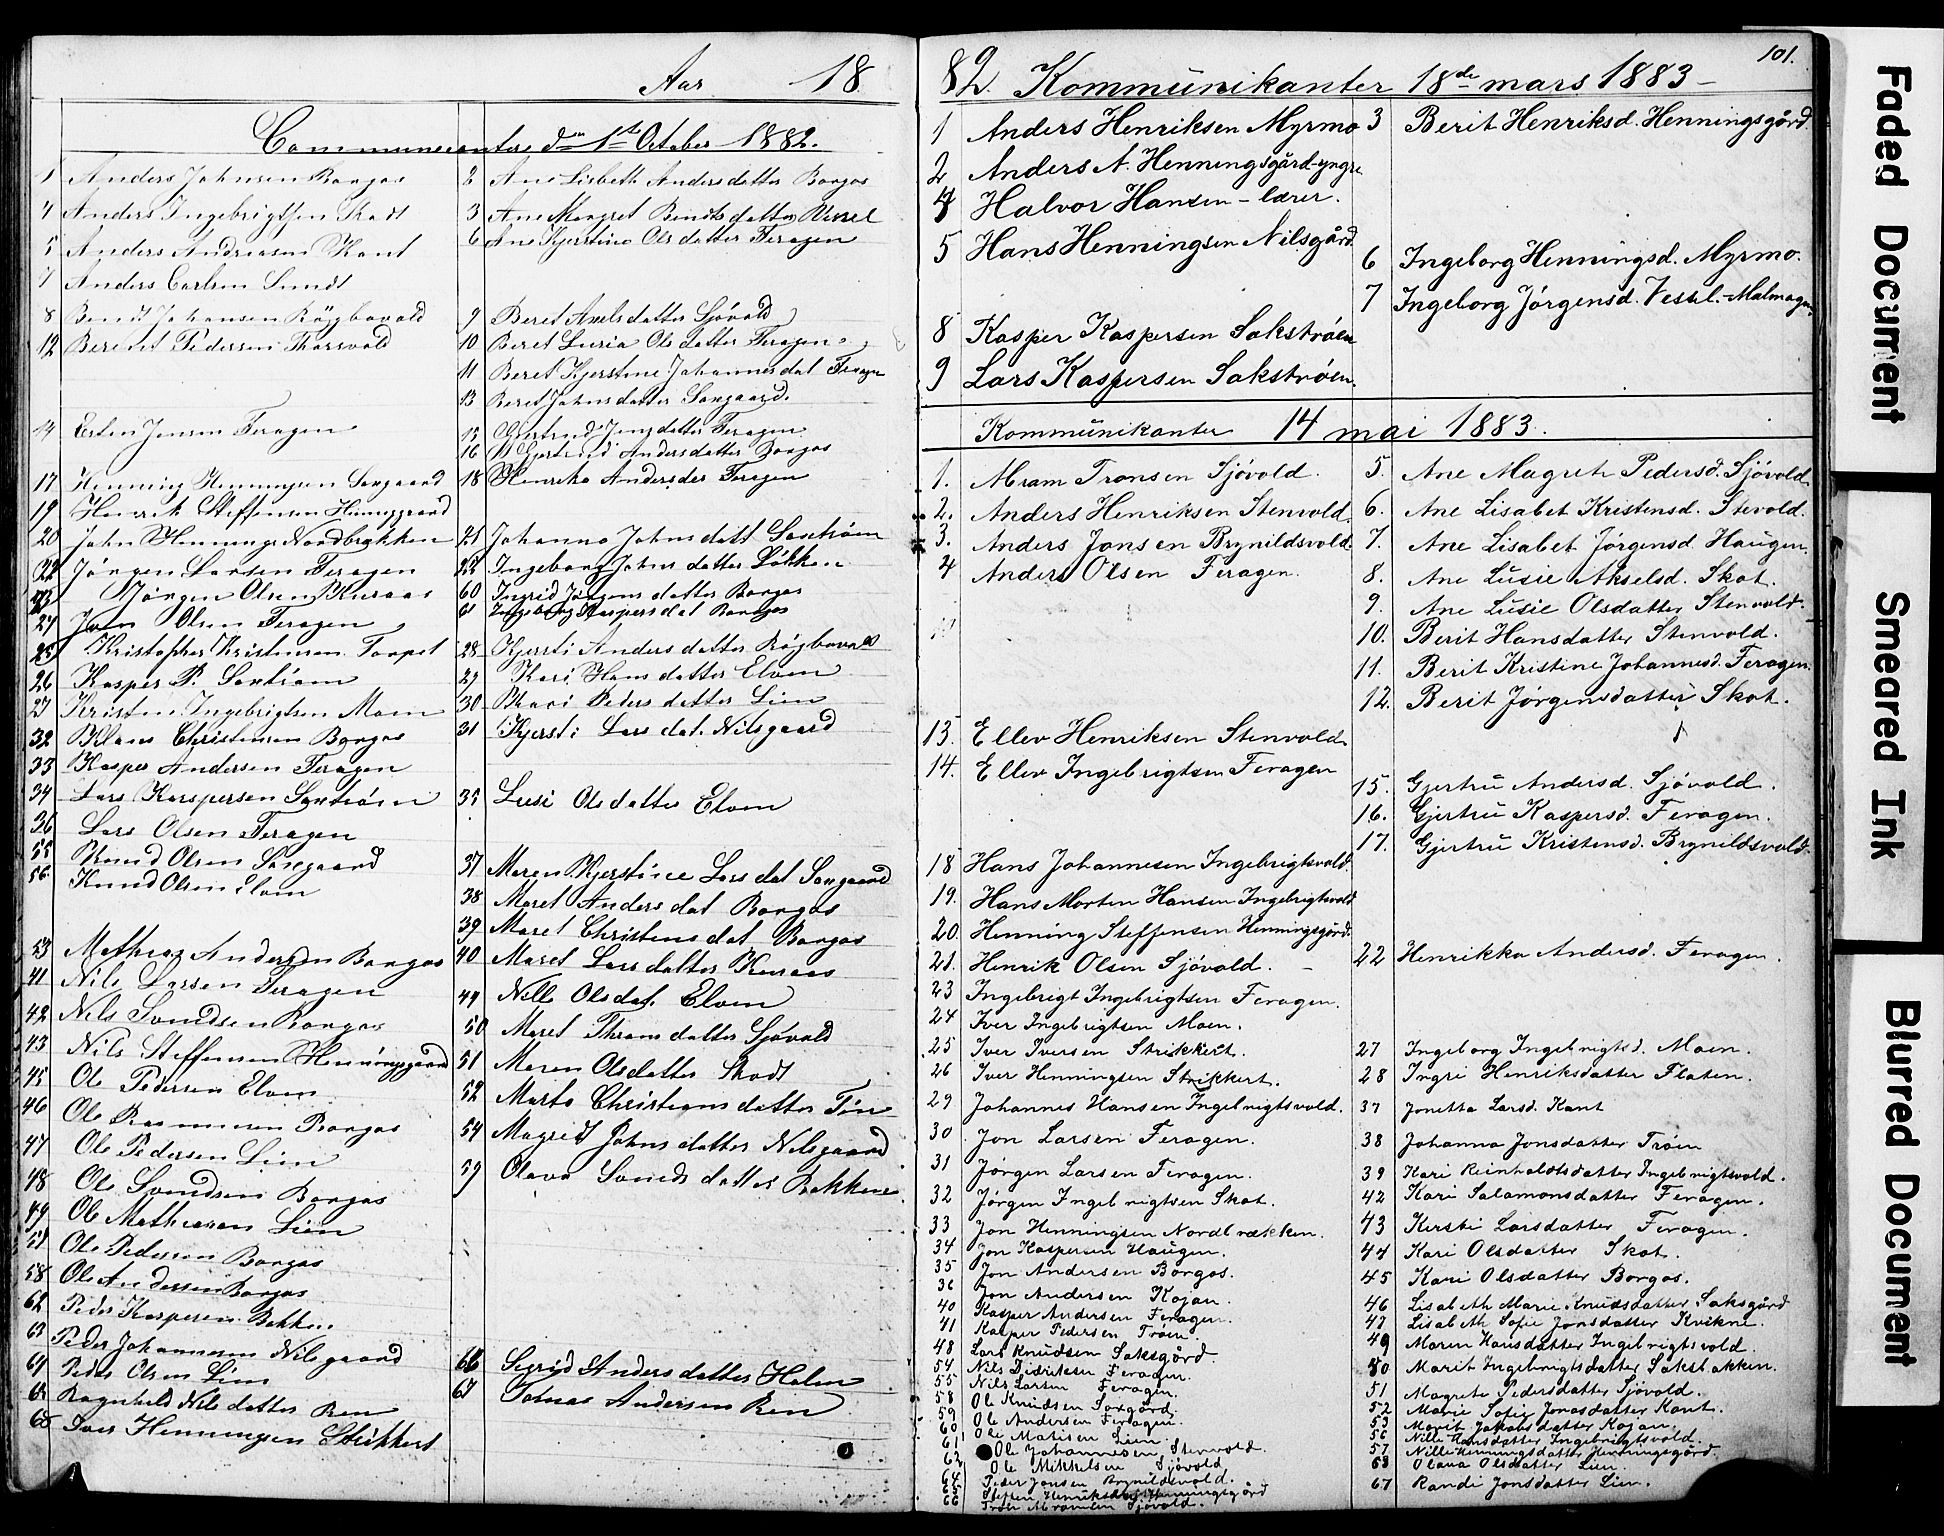 Aar 18
Communecanter den 1ste October 1882.
1 Anders Johnsen Borgos
4 Anders Ingebrigtsen Skodt
5 Anders Andreasen Kant
7 Anders Carlsen Sundt
8 Bendt Johansen Røgbovold
12 Berent Pedersen Thorsvold
14 Esten Jensen Feragen
17 Henning Henningsen Saxgaard
19 Henrik Steffensen Henninggaard
20 John Hennings Nordbrekken
22 Jörgen Larsen Feragen
23 Jörgen Olsen Kuraas
24 Jon Olsen Feragen
25 Kristopher Kristensen
26 Kasper P. Saxtrøm
27 Kristen Ingebrigtsen Moen
32 Klaus Christensen Borgos
33 Kasper Andersen Feragen
34 Lars Karspersen Saxtrøen
36 Lars Olsen Feragen
55 Knud Olsen Saxgaard
56 Knud Olsen Elven
53 Mathias Andersen Borgos
41 Nils Larsen Feragen
42 Nils Svendsen Borgos
43 Nils Steffensen Henninggaard
45 Ole Pedersen Elven
46 Ole Rasmussen Borgos
47 Ole Pedersen Lien
48 Ole Svendsen Borgos
49 Ole Mathiasen Lien
57 Ole Pedersen Borgos
58 Ole Andersen Borgos
62 Peder Kaspersen Bakken
63 Peder Johannesen Nilsgaard
64 Peder Olsen Lien
65 Ragnhild Nils datter Ren
68 Iver Henningsen Strikkert
2 Ane Lisbeth Anders datter Borgos
3 Ane Margret Bendts datter Vessel
6 Ane Kjerstine Ols datter Feragen
9 Beret Axels datter Sjövold
10 Beret Lusia Ols datter Feragen
11 Beret Kjerstine Johannes dat Feragen
13 Beret Johns datter Saxgaard.
15 Gjertrud Jens datter Feragen
16 Gjertrud Anders datter Borgos
18 Henrika Anders der Feragen
21 Johanna Johns datt Saxtrøen
22 Ingeborg Johns datter Løkken
60 Ingrid Jörgens datter Borgos
61 Ingeborg Kaspers dat Borgos
28 Kjersti Anders datter Røgbovold
29 Kari Hans datter Elven
30 Kari Peders datter Lien
31 Kjersti Lars dat. Nilsgaard
35 Lusi Ols datter Elven
37 Maren Kjerstine Lars dat Saxgaard
38 Maret Anders dat Borgos
39 Maret Christens dat Borgos
40 Maret Lars datter Kuraas
44 Nille Ols dat. Elven
50 Maret Throns datter Sjövold
51 Maren Olsdatter Skodt
52 Marta Christians datter
54 Magret Johns datter Nilsgaard
59 Olava Svends datter Bakken
66 Sigrid Anders datter Holm
67 Tomas Andersen Ren
82. Kommünikanter 18de mars 1883 –
101.
1 Anders Henriksen Myrmo
2 Anders A. Henningsgård-yngre
4 Halvor Hansen – lærer.
5 Hans Henningsen Nilsgård
8 Kasper Kaspersen Sakstrøen
9 Lars Kaspersen Sakstrøen.
3 Berit Henriksd. Henningsgård.
6 Ingeborg Henningsd. Myrmo.
7 Ingeborg Jörgensd. Vessel.-Malmagen.
Kommünikanter 14 mai 1883.
1. Abram Tronsen Sjövold.
2. Anders Henriksen Stenvold.
3. Anders Jonsen Brynildsvold.
4 Anders Olsen Feragen.
13. Ellev Henriksen Stenvold.
14. Ellev Ingebrigtsen Feragen
18 Hans Johannesen Ingebrigtsvold.
19. Hans Morten Hansen Ingebrigtsvold.
20. Henning Steffensen Henningsgård.
21. Henrik Olsen Sjövold.
23 Ingebrigt Ingebrigtsen Feragen.
24 Iver Ingebrigtsen Moen.
25 Iver Iversen Strikkert.
26 Iver Henningsen Strikkert.
29 Johannes Hansen Ingebrigtsvold.
30 Jon Larsen Feragen.
31 Jörgen Larsen Feragen.
32 Jörgen Ingebrigtsen Skot.
33 Jon Henningsen Nordbrækken.
34 Jon Kaspersen Haugen.
35 Jon Andersen Borgos.
36 Jon Andersen Kojan.
40 Kasper Andersen Feragen.
41 Kasper Pedersen Trøen.
48 Lars Knudsen Saksgård.
54 Nils Didriksen Feragen.
55 Nils Larsen Feragen.
58 Ole Knudsen Saxgård.
59 Ole Andersen Feragen.
60 Ole Matisen Lien.
61 Ole Johannesen Stenvold.
62 Ole Mikkelsen Sjövold
64 Peder Jonsen Brynildsvold.
65 Steffen Henriksen Henningsgård
66 Tron Abramsen Sjövold.
5. Ane Magrete Pedersd. Sjövold
6. Ane Lisabet Kristensd. Stevold.
7. Ane Lisabet Jörgensd. Haugen.
8. Ane Lusie Akselsd. Skot.
9. Ane Lusie Olsdatter Stenvold.
10. Berit Hansdatter Stenvold.
11. Berit Kristine Johannesd. Feragen.
12. Berit Jörgensdatter Skot.
15. Gjertru Andersd. Sjövold.
16. Gjertru Kaspersd. Feragen.
17. Gjertru Kristensd. Brynildsvold.
22 Henrikka Andersd. Feragen.
27 Ingeborg Ingebrigtsd. Moen.
28 Ingri Henriksdatter Flaten.
37 Jonetta Larsd. Kant
38 Johanna Jonsdatter Trøen
39 Kari Reinholdtsdatter Ingebrigtsvold.
42 Kari Salamonsdatter Feragen.
43 Kersti Larsdatter Feragen.
44 Kari Olsdatter Skot.
45 Kari Olsdatter Borgos.
46 Lisabeth Marie Knudsdatter Saksgård
47 Lisabeth Sofie Jonsdatter Kvikne.
49 Maren Hansdatter Ingebrigtsvold.
50 Marit Ingebrigtsdatter Saksbakken.
51 Magrete Pedersdatter Sjövold.
52 Marie Sofie Jonasdatter Kant.
53 Marit Jakobsdatter Kojan.
56 Nille Hansdatter Ingebrigtsvold.
57 Nille Henningsdatter Henningsgård.
63 Olava Olsdatter Lien.
67 Randi Jonsdatter Lien.
Faded Document
Smeared Ink
Blurred Document